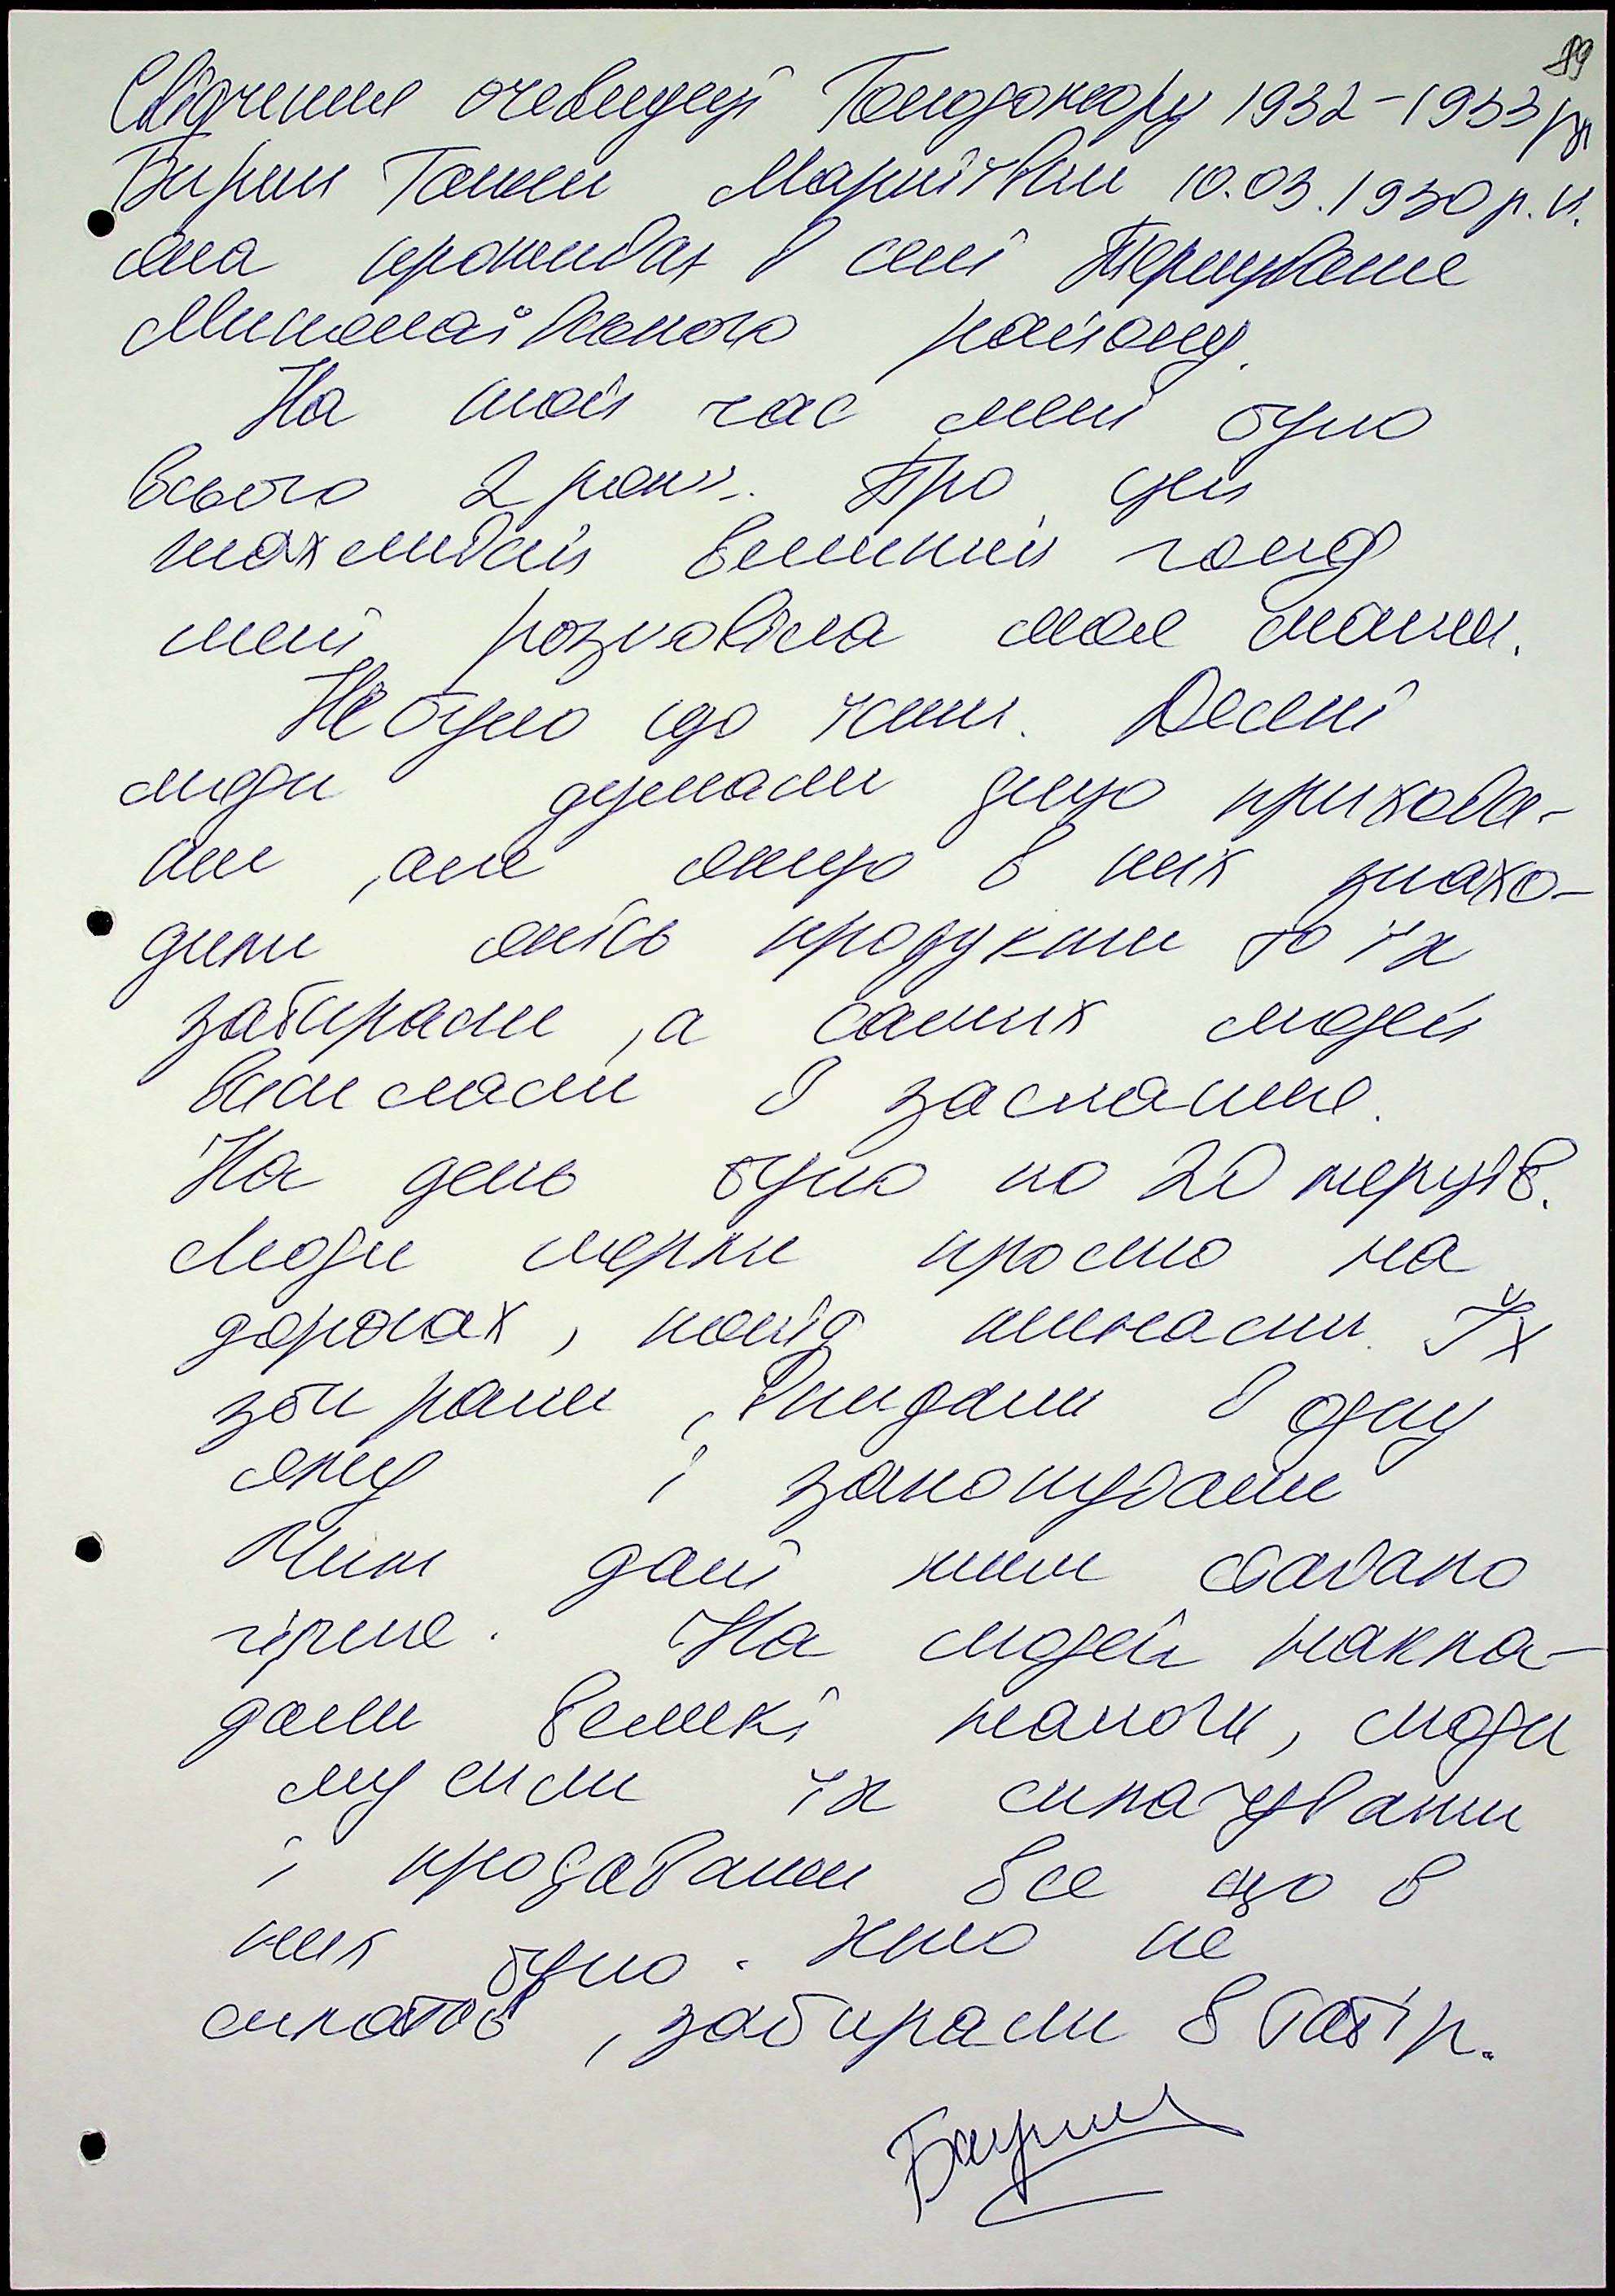 89
Свідчення очевидці Голодомору 1932-1933рр
Бирин Ганни Марківни 10.03.1930р.н.
яка проживає в селі Тернування
Миколаївського району.
На той час мені було
всього 2 роки. Про цей
жахливий великий голод
мені розповіла моя мати.
Не було що їсти. Деякі
люди думали дещо прихова-
ти, але якщо в них знахо-
дили якісь продукти то їх
забирали, а самих людей
висилали в заслання.
На день було по 20 мерців.
Люди мерли просто на
дорогах, попід тинами. Їх
збирали, вкидали в одну
яму і закопували
Чим далі тим ставало
гірше. На людей накла-
дали великі налоги, люди
мусили їх сплачувати
і продавати все що в
них було. Хто не
сплатив, забирали в табір.